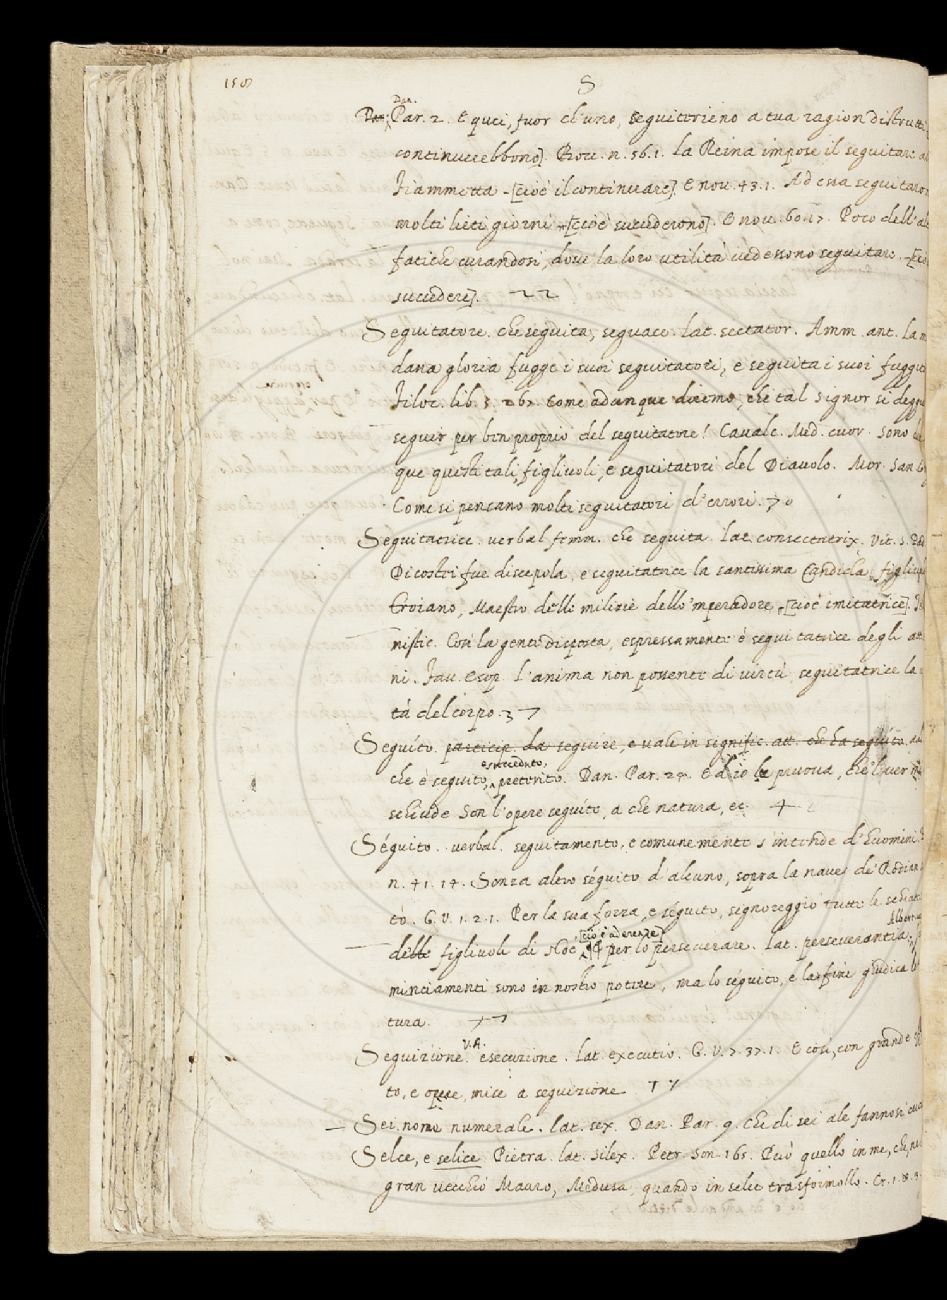 158
S
Dan.
Dan. Par. 2. E quei, fuor ch'uno, seguiterieno a tua ragion distrutti
continuerebbono]. Bocc. n. 56. 1. la Reina impose il seguitare al
Fiammetta -[cioè il continuare]. E nov. 43. 1. Ad essa seguitaron
molti lieti giorni -[cioè succederono]. E nov. 60. 17. Poco dell'al
fatiche curandosi, dove la loro utilità vedessono seguitare -[cio
succedere]. 22
Seguitatore. che seguita, seguace. lat. sectator. Amm. ant. La m
dana gloria fugge i suoi seguitatori, e seguita i suoi fuggit
Filoc. lib. 5. 267. Come adunque diremo, che tal signor si deggia
seguir per ben proprio del seguitatore? Cavalc. Med. cuor. Sono
que questi tali figlivoli, e seguitatori del Diavolo. Mor. San
Come si pensano molti seguitatori d'errori. 70
Seguitatrice. verbal femm. che seguita. lat. consectatrix. Vit. S. Pad
Di costei fue discepola, e seguitatrice la santissima Candida, figliuol
Troiano, Maestro delle milizie dello 'mperadore -[cioè imitatrice].
mistic. Così la gente disposta, espressamente è seguitatrice degli att
ni. Fav. Esop. l'anima non possente di virtù, seguitatrice la
tà del corpo. 37
Seguíto. particip. da seguire, e vale in signific. att. che ha seguito.
e succeduto,
che è seguito, preterito. Dan. Par. 24. Ed io la pruova, che 'l ver
schiude Son l'opere seguite, a che natura, ec. 4
Séguito. verbal. seguitamento, e comunemente s'intende d'huomini.
n. 41. 14. Senza alcro séguito d'alcuno, sopra la nave de' Rodian
tò. G. V. 1. 2. 1. Per la sua forza, e séguito, signoreggiò tutte le schiatte
[cioè aderenze] Albert.
delle figlivoli di Noè. per lo perseverare. lat. perseverantia.
minciamenti sono in nostro potere, ma lo séguito, e la fine giudica la
tura. 77
V.A.
Seguizione. esecuzione. lat. executio. G. V. 7. 37. 1. E così, con grande
to, e opere, mise a seguizione. 17
Sei. nome numerale. lat. sex. Dan. Par. 9. che di sei ale fannosi
Selce, e selice. Pietra. lat. silex. Petr. Son. 165. Può quello in me, che,
gran vecchio Mauro, Medusa, quando in selce trasformollo. Cr. 1. 8. 9.